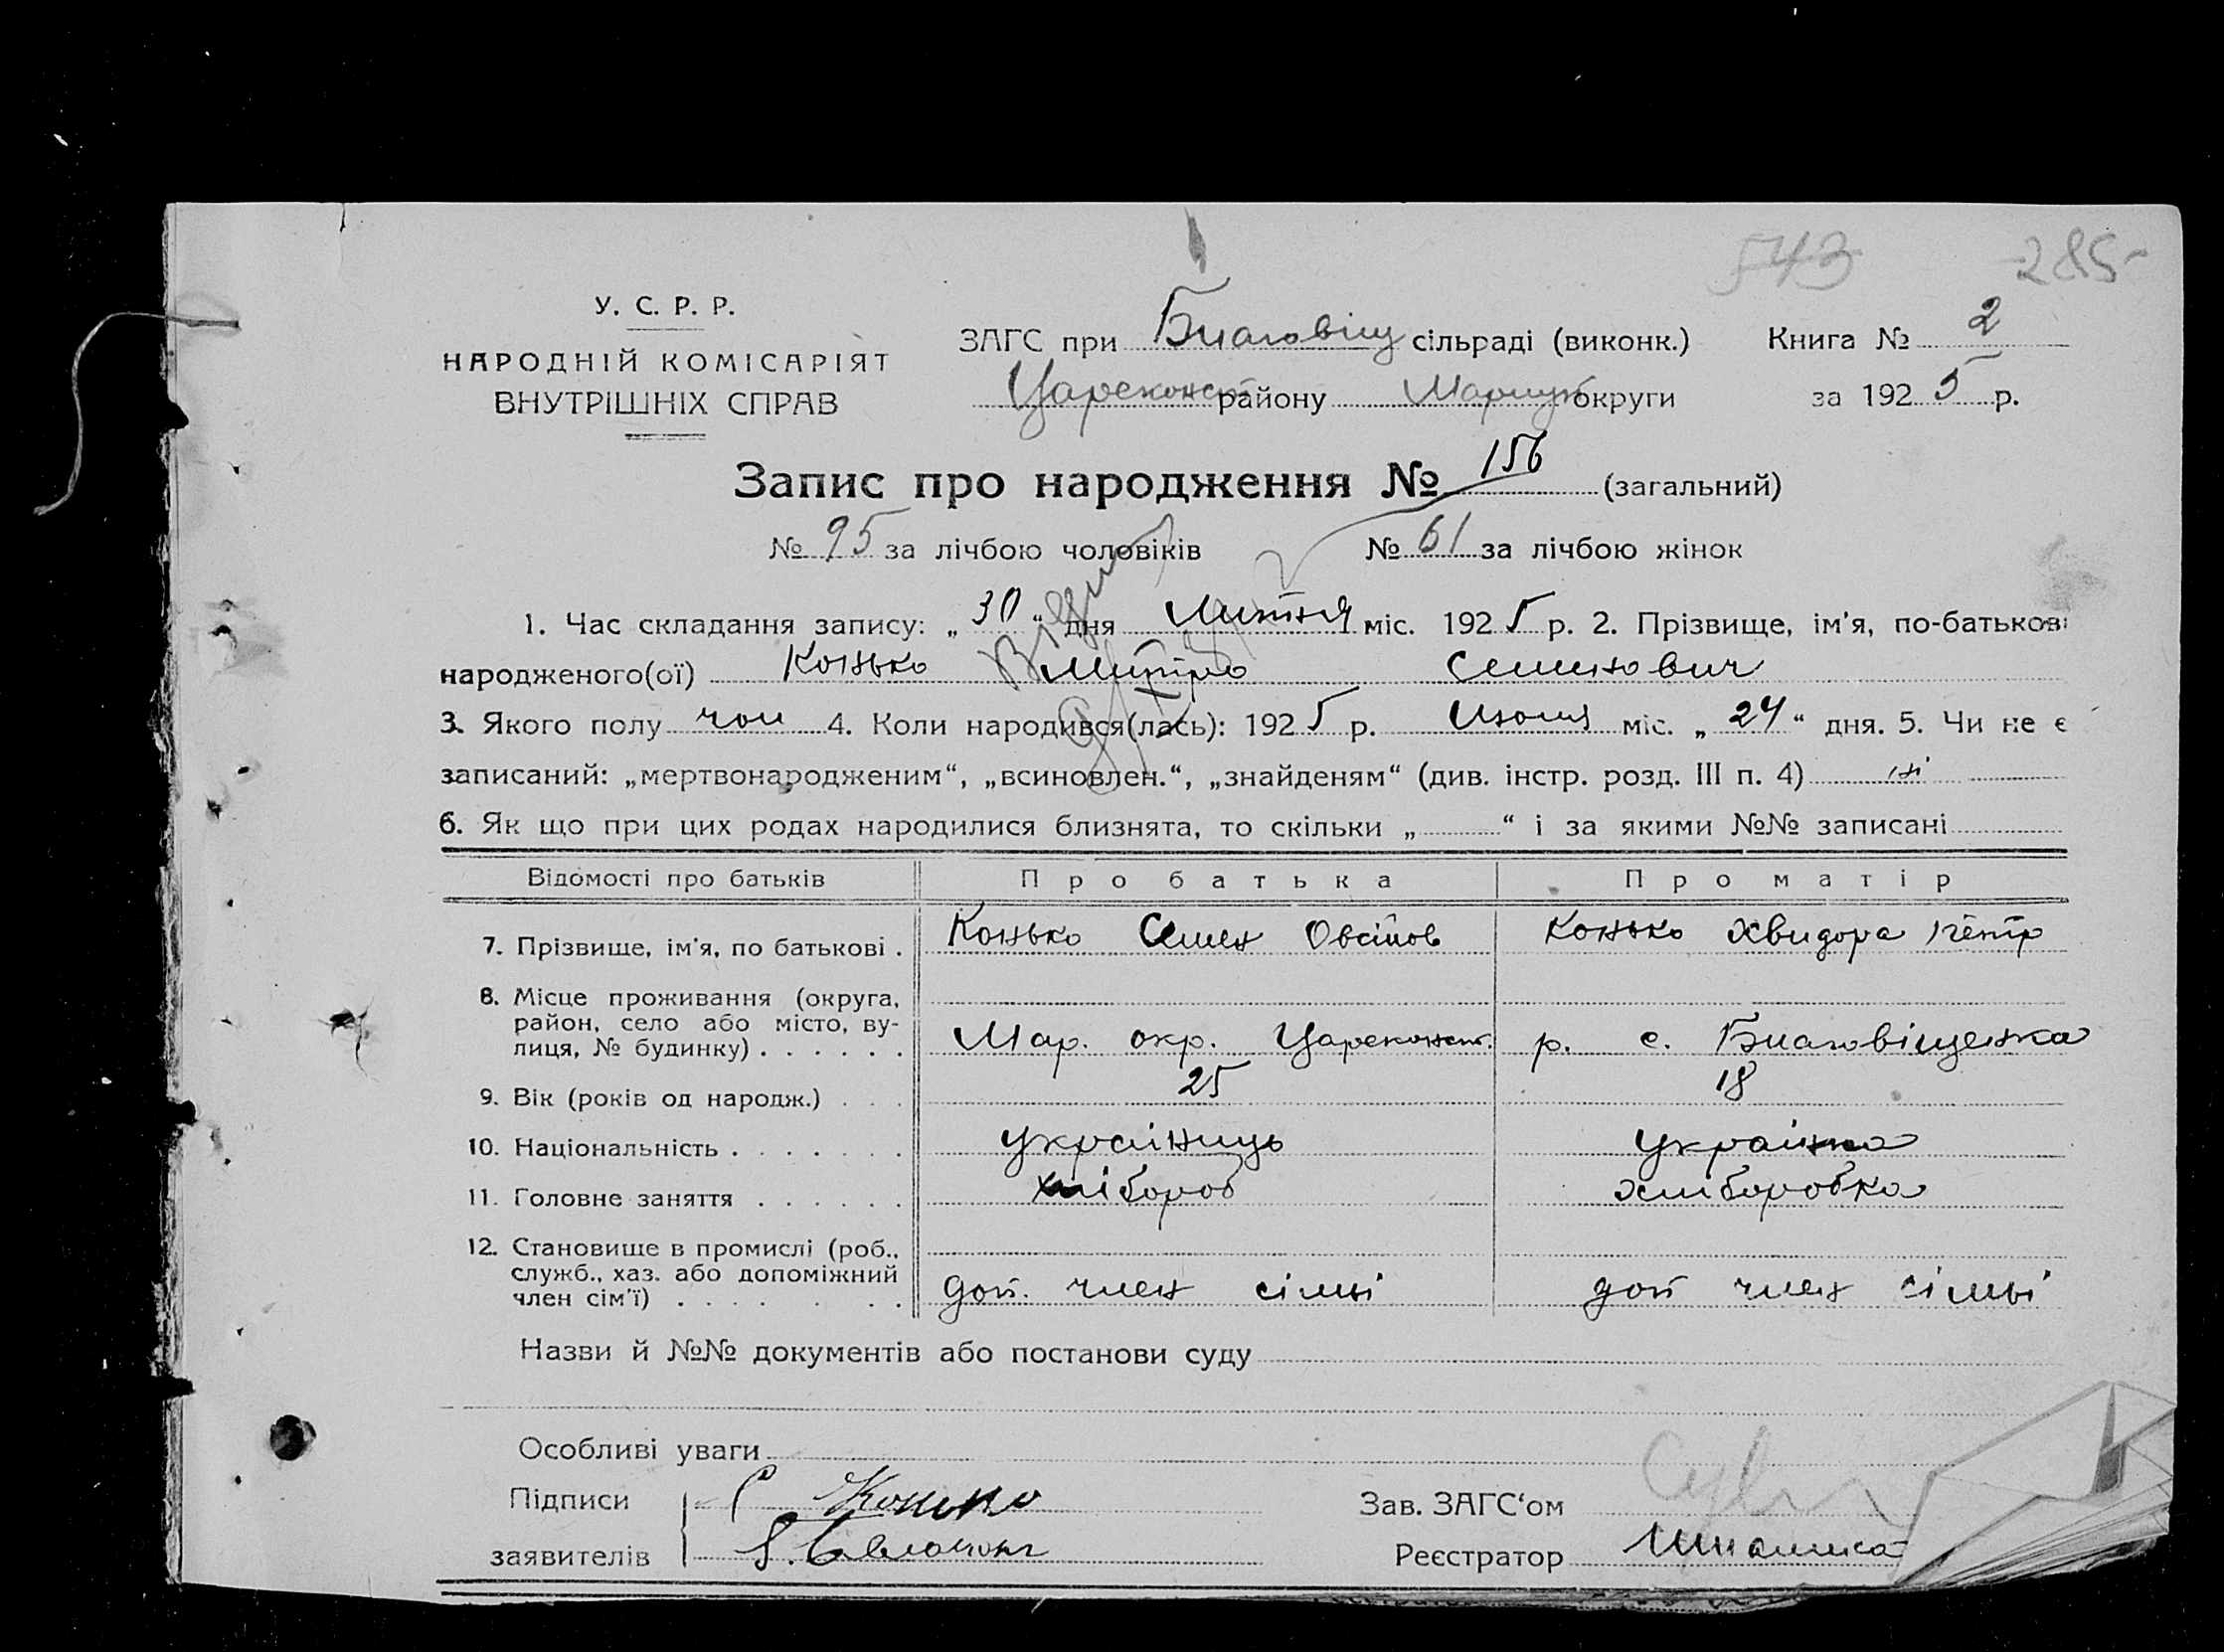 543 285
У. С. Р. Р.
НАРОДНІЙ КОМІСАРІЯТ
ВНУТРІШНІХ СПРАВ
ЗАГС при Благовіщ сільраді (виконк.) Книга № 2
Цареконст району Маріуп округи за 1925 р.
Запис про народження № 156 (загальний)
№ 95 за лічбою чоловіків № 61 за лічбою жінок
1. Час складання запису: „30“ дня Липня міс. 1925 р. 2. Прізвище, ім'я, по-батькові
народженого(ої) Конько Митро Семенович
3. Якого полу чол 4. Коли народився(лась): 1925 р. Июля міс. „24“ дня. 5. Чи не є
записаний: „мертвонародженим“, „всиновлен.“, „знайденям“ (див. інстр. розд. III п. 4) ні
6. Як що при цих родах народилися близнята, то скільки „ “ і за якими №№ записані
Відомості про батьків Про батька Про матір
7. Прізвище, ім'я, по батькові . Конько Семен Овсіпов Конько Хвидора Петр
8. Місце проживання (округа,
район, село або місто, ву-
лиця, № будинку) . . . . . . Мар. окр. Цареконст. р. с. Благовіщенка
9. Вік (років од народж.) . . . 25 18
10. Національність . . . . . . . україниць українка
11. Головне заняття . . . . . . хлібороб хліборобка
12. Становище в промислі (роб.,
служб., хаз. або допоміжний
член сім'ї) . . . . . . . доп. член сімьі доп член сімьі
Назви й №№ документів або постанови суду
Особливі уваги
Підписи С Конько Зав. ЗАГС‘ом
заявителів Реєстратор